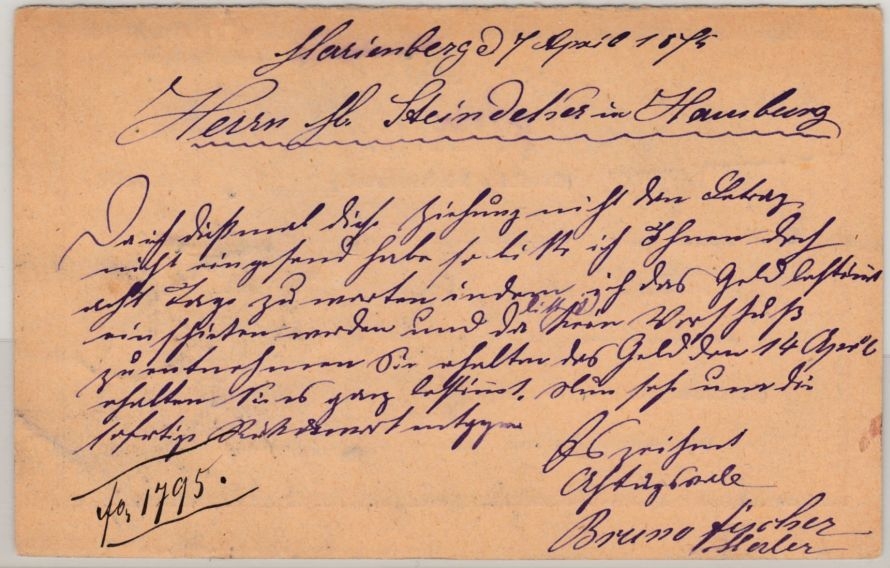 Marienberg d 7 April 1875
Herrn M. Steindeker in Hamburg
Da ich dießmal die Ziehung nicht den Betrag
nicht eingesend habe so bitte ich Ihnen doch
acht Tage zu warten indem ich das Geld bestimt
einschicken werden und da bitte kein Vorschuß
zu entnehmen Sie erhalten das Geld den 14 April
erhalten Sie es ganz bestimt. Nun sehe nur die
sofortige Rückantwort entgegen
Es zeichnet
Achtugsvole
Bruno Fischer
Maler
1795.